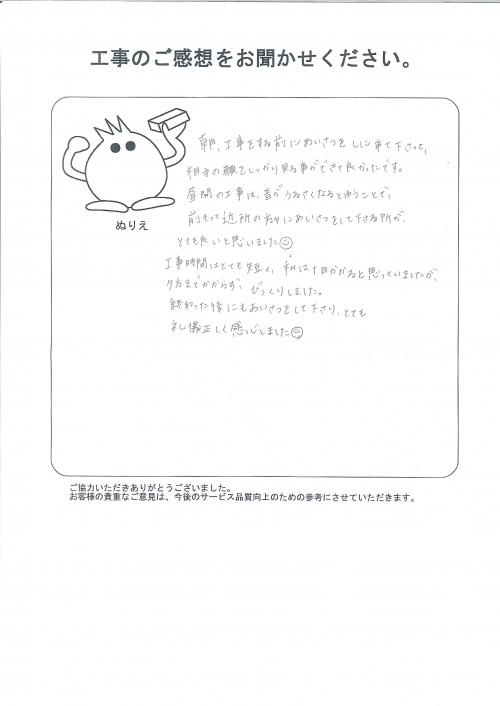 工事のご感想をお聞かせください。
ぬりえ
朝、工事をする前にあいさつをしに来て下さって、
相手の顔をしっかり見る事ができて良かったです。
昼間の工事は、音がうるさくなるとゆうことで、
前もって近所の方々にあいさつをして下さる所が、
とても良いと思いました
工事時間はとても短く、私は1日かかると思っていましたが、
夕方までかからず、びっくりしました。
終わった後にもあいさつをして下さり、とても
礼儀正しく感心しました
ご協力いただきありがとうございました。
お客様の貴重なご意見は、今後のサービス品質向上のための参考にさせていただきます。